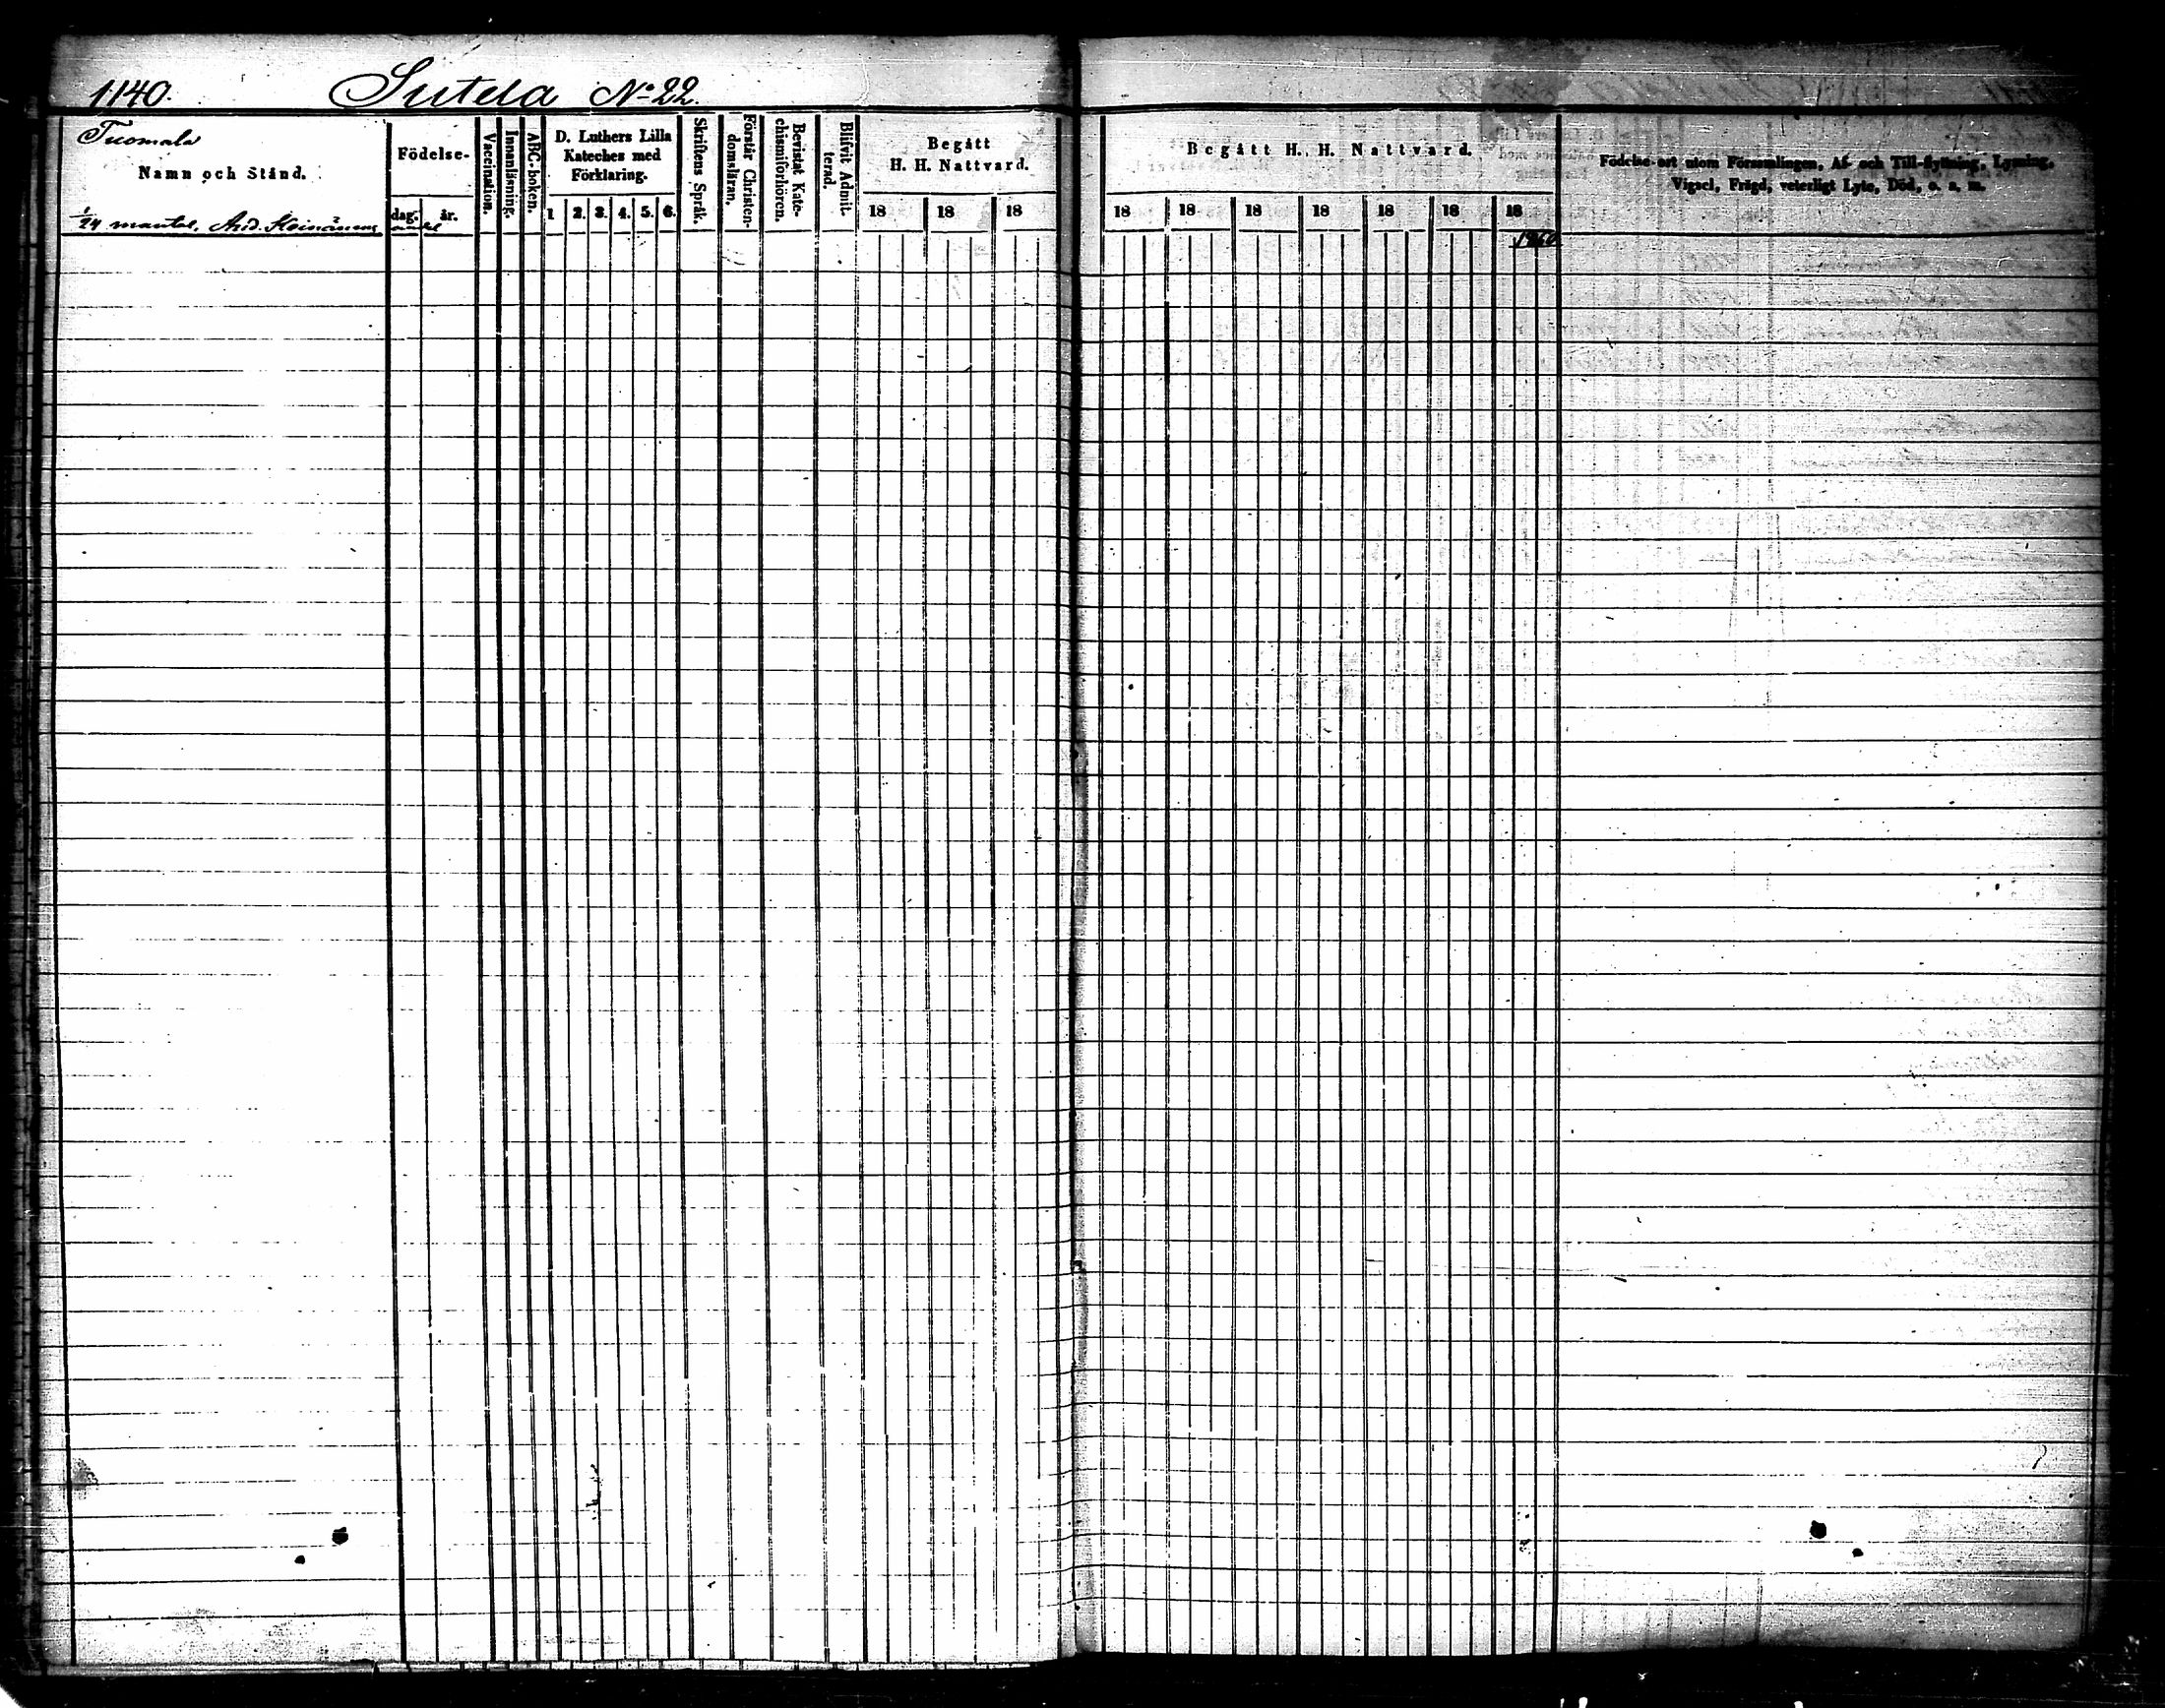 1140. Sutela No 22.
Tuomala
Namn och Stånd.
1/24 mantal. And. Heinänens andel
Födelse-
dag. år.
Vaccination.
Innanläsning.
ABC-boken.
D. Luthers Lilla
Kateches med
Förklaring.
1. 2. 3. 4. 5. 6.
Skriftens Språk.
Förstår Christen-
domsläran.
Bevistat Kate-
chismiförhören.
Blifvit Admit-
terad.
Begått
H. H. Nattvard.
18 18 18
Begått H. H. Nattvard.
18 18 18 18 18 18 18
1860
Födelse-ort utom Församlingen, Af- och Till-flyttning, Lysning,
Vigsel, Frägd, veterligt Lyte, Död, o. s. m.